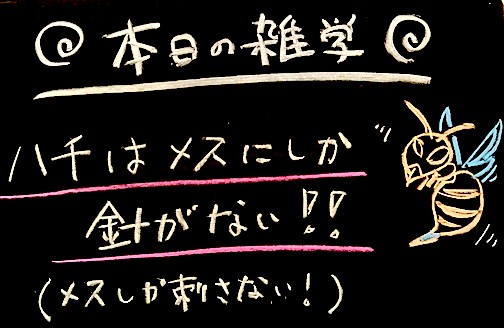 本日の雑学
ハチはメスにしか
針がない!!
(メスしか刺さない!)